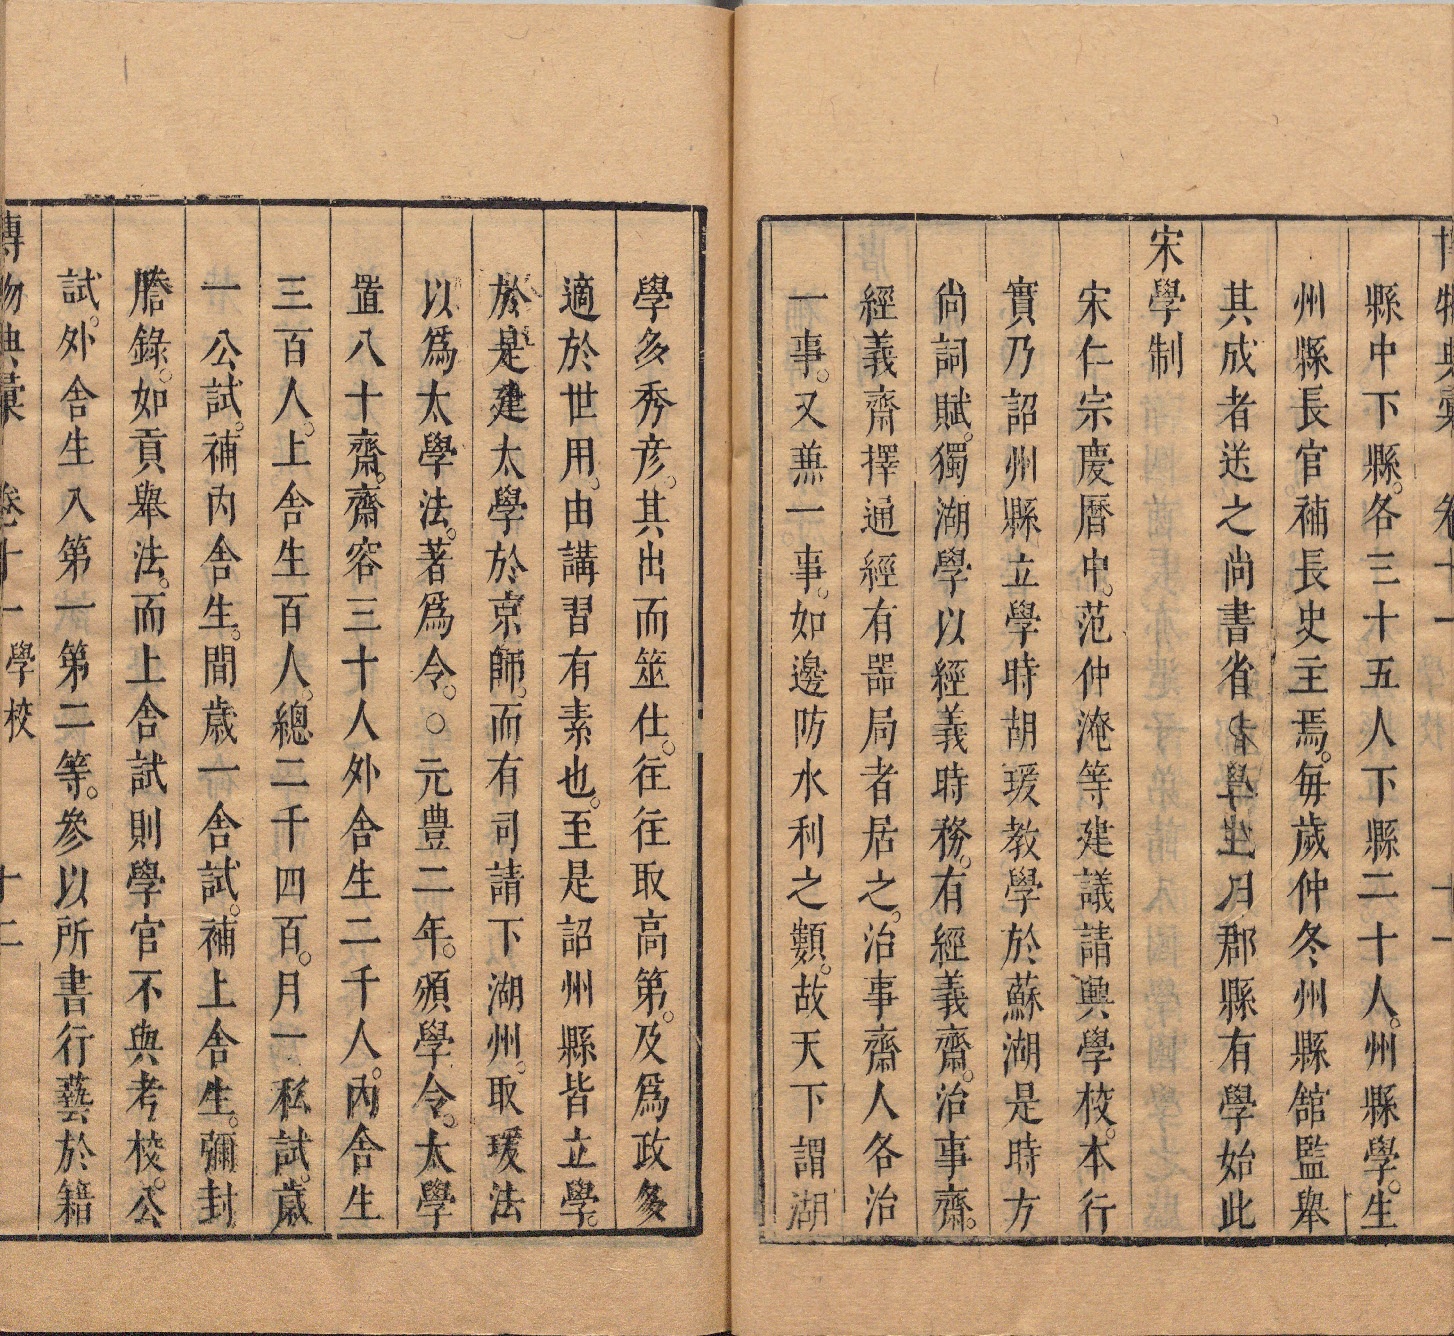 博物典彙 卷十一 學校 十一
縣中下縣。各三十五人下縣二十人。州縣學。生
州縣長官補長史主焉。每歲仲冬州縣舘監舉
其成者送之尚書省 學生 郡縣有學始此
宋學制
宋仁宗慶曆中。范仲淹等建議請興學校。本行
實乃詔州縣立學時胡瑗教學於蘇湖是時方
尚詞賦。獨湖學以經義時務。有經義齋。治事齋。
經義齋擇通經有器局者居之。治事齋人各治
一事。又兼一事。如邊防水利之類。故天下謂湖
學多秀彥。其出而筮仕。往往取高第。及爲政多
適於世用。由講習有素也。至是詔州縣皆立學。
於是建太學於京師。而有司請下湖州。取瑗法
以爲太學法。著爲令。○元豊二年。頒學令。太學
置八十齋。齋容三十人外舍生二千人。內舍生
三百人。上舍生百人。總二千四百。月一私試。歲
一公試。補內舍生。間歲一舍試。補上舍生。彌封
謄錄。如貢舉法。而上舍試則學官不與考校。公
試。外舍生入第一第二等。參以所書行藝於籍
博物典彙 卷十一 學校 十二